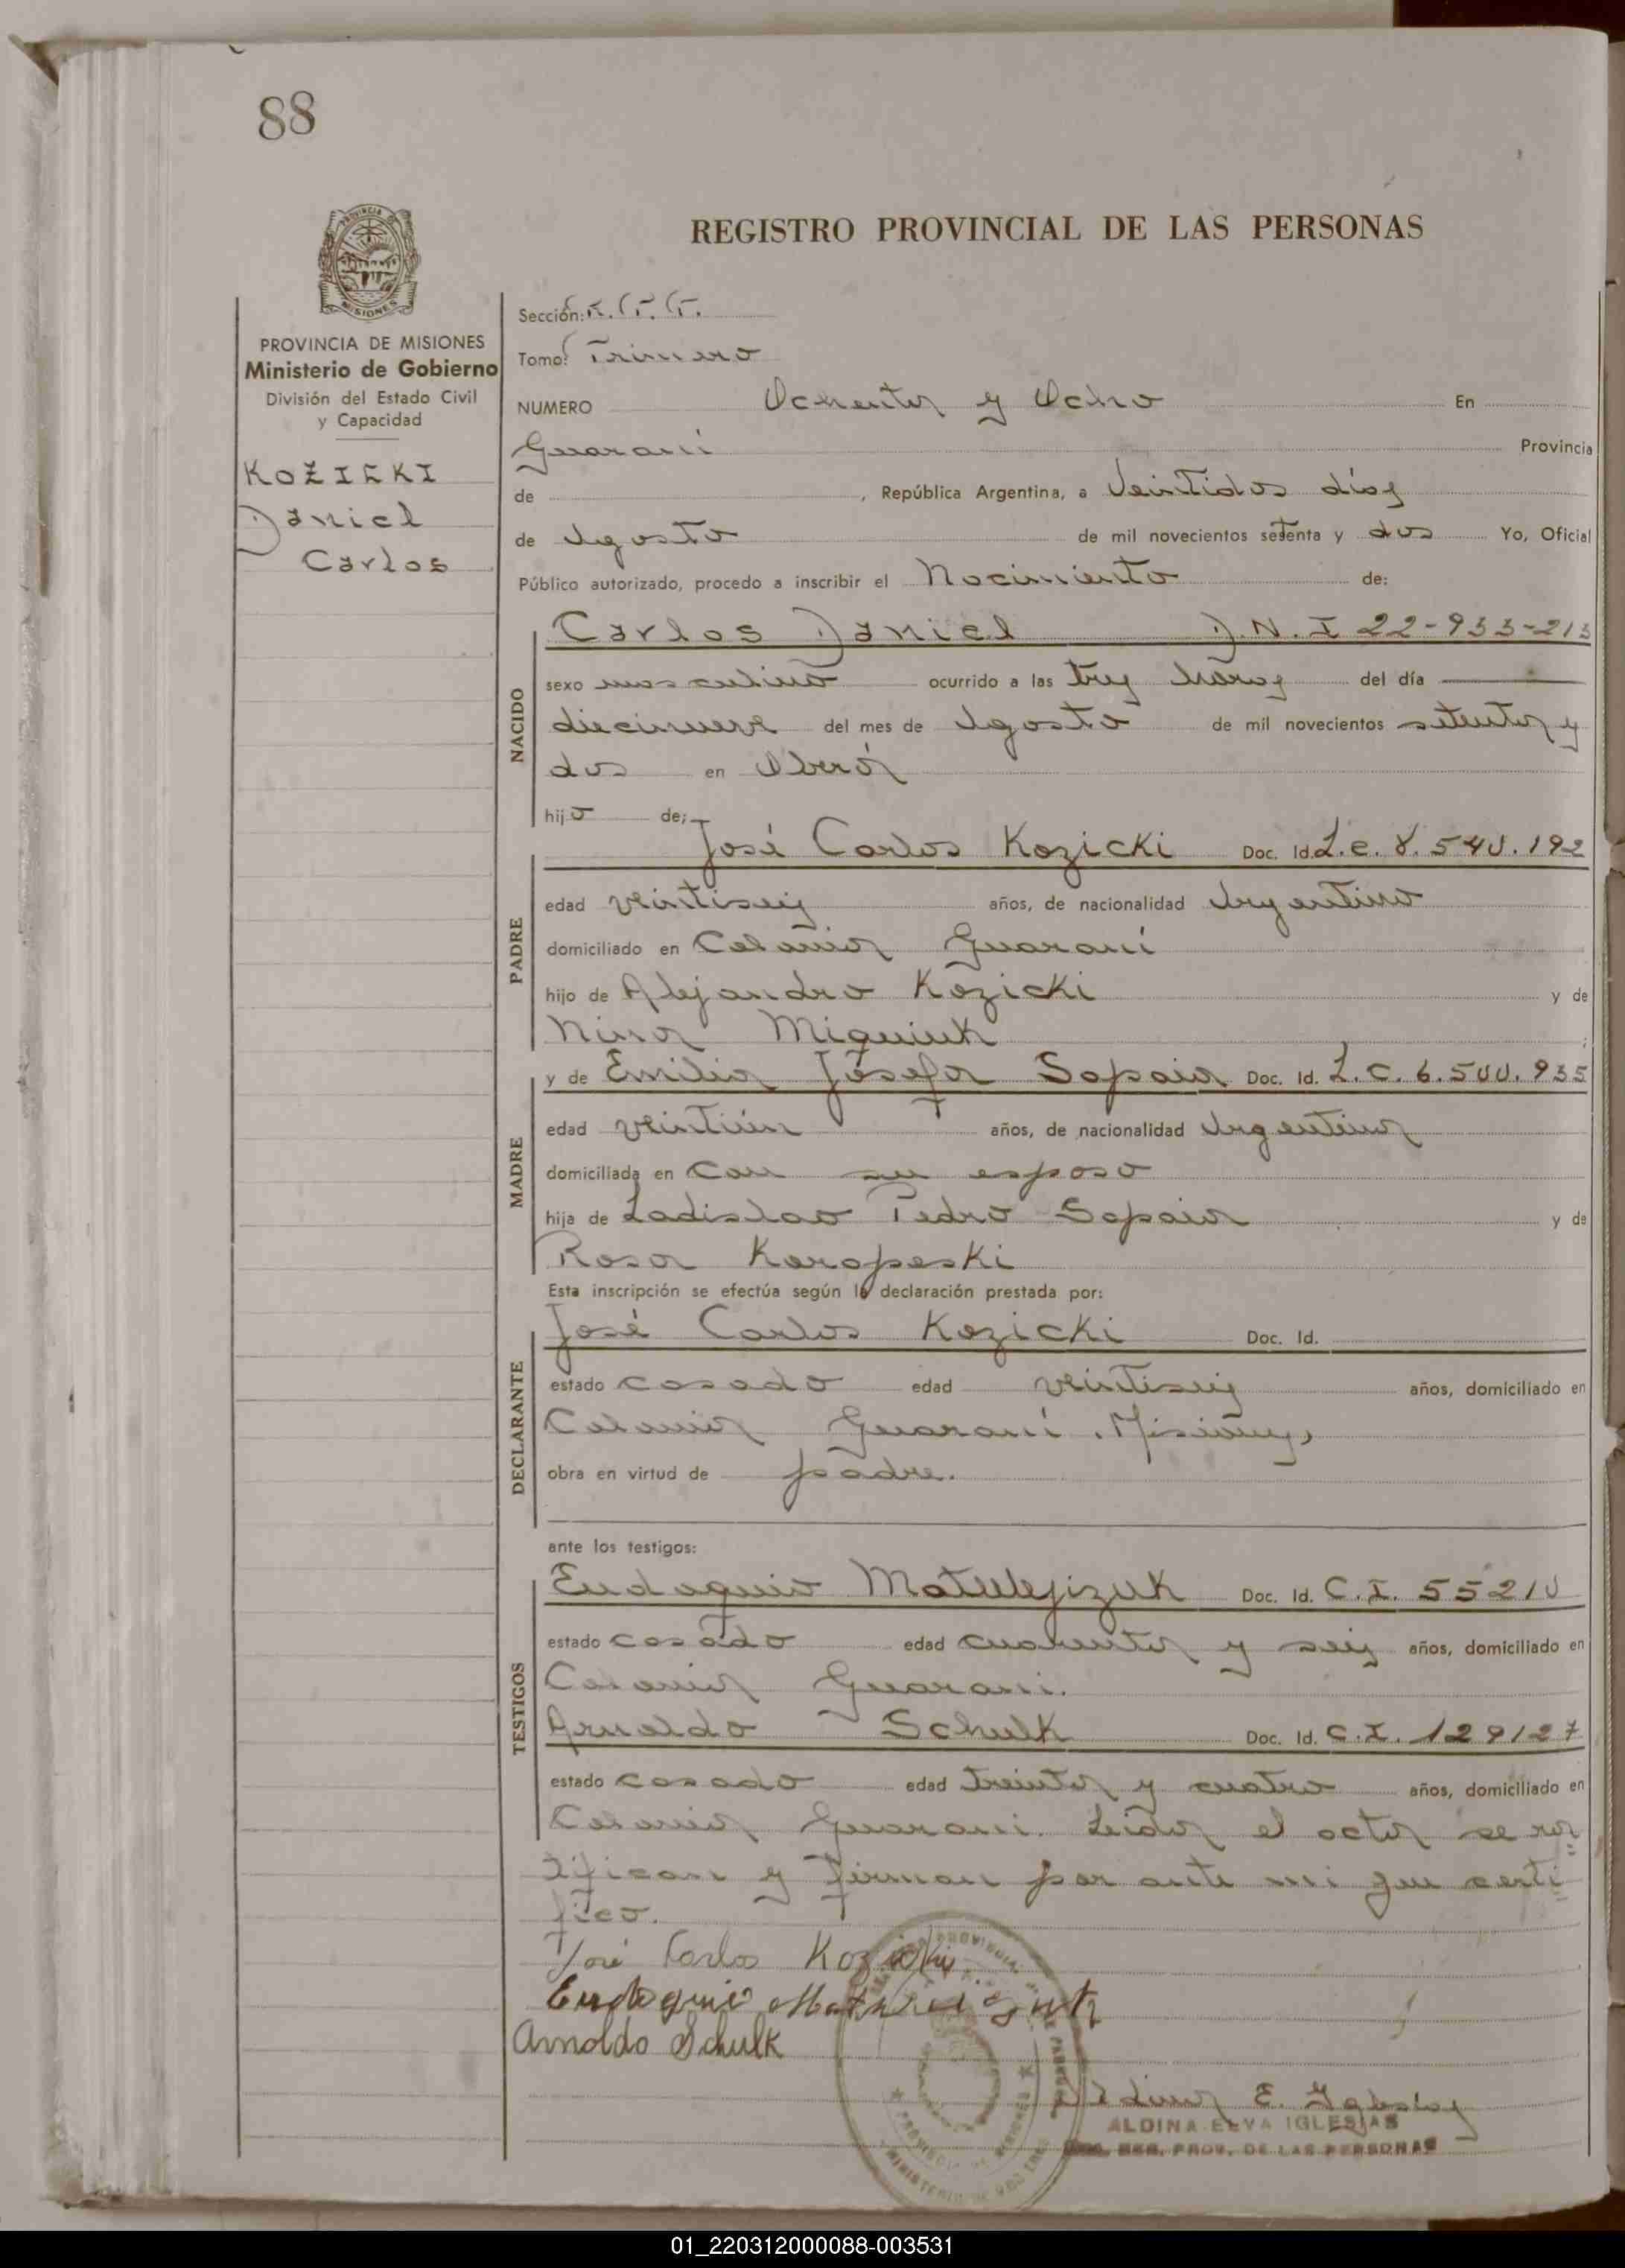 88
REGISTRO PROVINCIAL DE LAS PERSONAS
PROVINCIA DE
MISIONES
PROVINCIA DE MISIONES
Ministerio de Gobierno
División del Estado Civil
y Capacidad
KOZICKI
Daniel
Carlos
Sección:
Tomo: Primero
NUMERO Ochenta y Ocho En
Guaraní Provincia
de , República Argentina, a Veintidos días
de Agosto de mil novecientos setenta y dos Yo, Oficial
Público autorizado, procedo a inscribir el Nacimiento de:
Carlos Daniel D.N.I 22-933-213
NACIDO
sexo masculino ocurrido a las tres horas del día
diecinueve del mes de Agosto de mil novecientos setenta y
dos en Oberá
hijo de;
José Carlos Kozicki Doc. Id. L.e. 8.540.192
PADRE
edad veintiseis años, de nacionalidad Argentino
domiciliado en Colonia Guaraní
hijo de Alejandro Kozicki y de
Nina Miquiuk ;
y de Emilia Josefa Sapaia Doc. Id. L.C. 6.500.935
MADRE
edad veintiún años, de nacionalidad Argentina
domiciliada en con su esposo
hija de Ladislao Pedro Sapaia y de
Rosa Karopeski
Esta inscripción se efectúa según la declaración prestada por:
José Carlos Kozicki Doc. Id.
DECLARANTE
estado casado edad veintiseis años, domiciliado en
Colonia Guaraní, Misiones,
obra en virtud de padre.
ante los testigos:
Eudoquio Matulejizuk Doc. Id. C.I. 55210
TESTIGOS
estado casado edad cuarenta y seis años, domiciliado en
Colonia Guarani.
Arnoldo Schulk Doc. Id. C.I. 129127
estado casado edad treinta y cuatro años, domiciliado en
Colonia Guarani. Leída el acta se ra=
tifican y firman por ante mi que certi=
fico.
José Carlos Kozicki
Eudoquio
Arnoldo Schulk
Aldina E. Iglesias
ALDINA ELVA IGLESIAS
REG. PROV. DE LAS PERSONAS
01_220312000088-003531